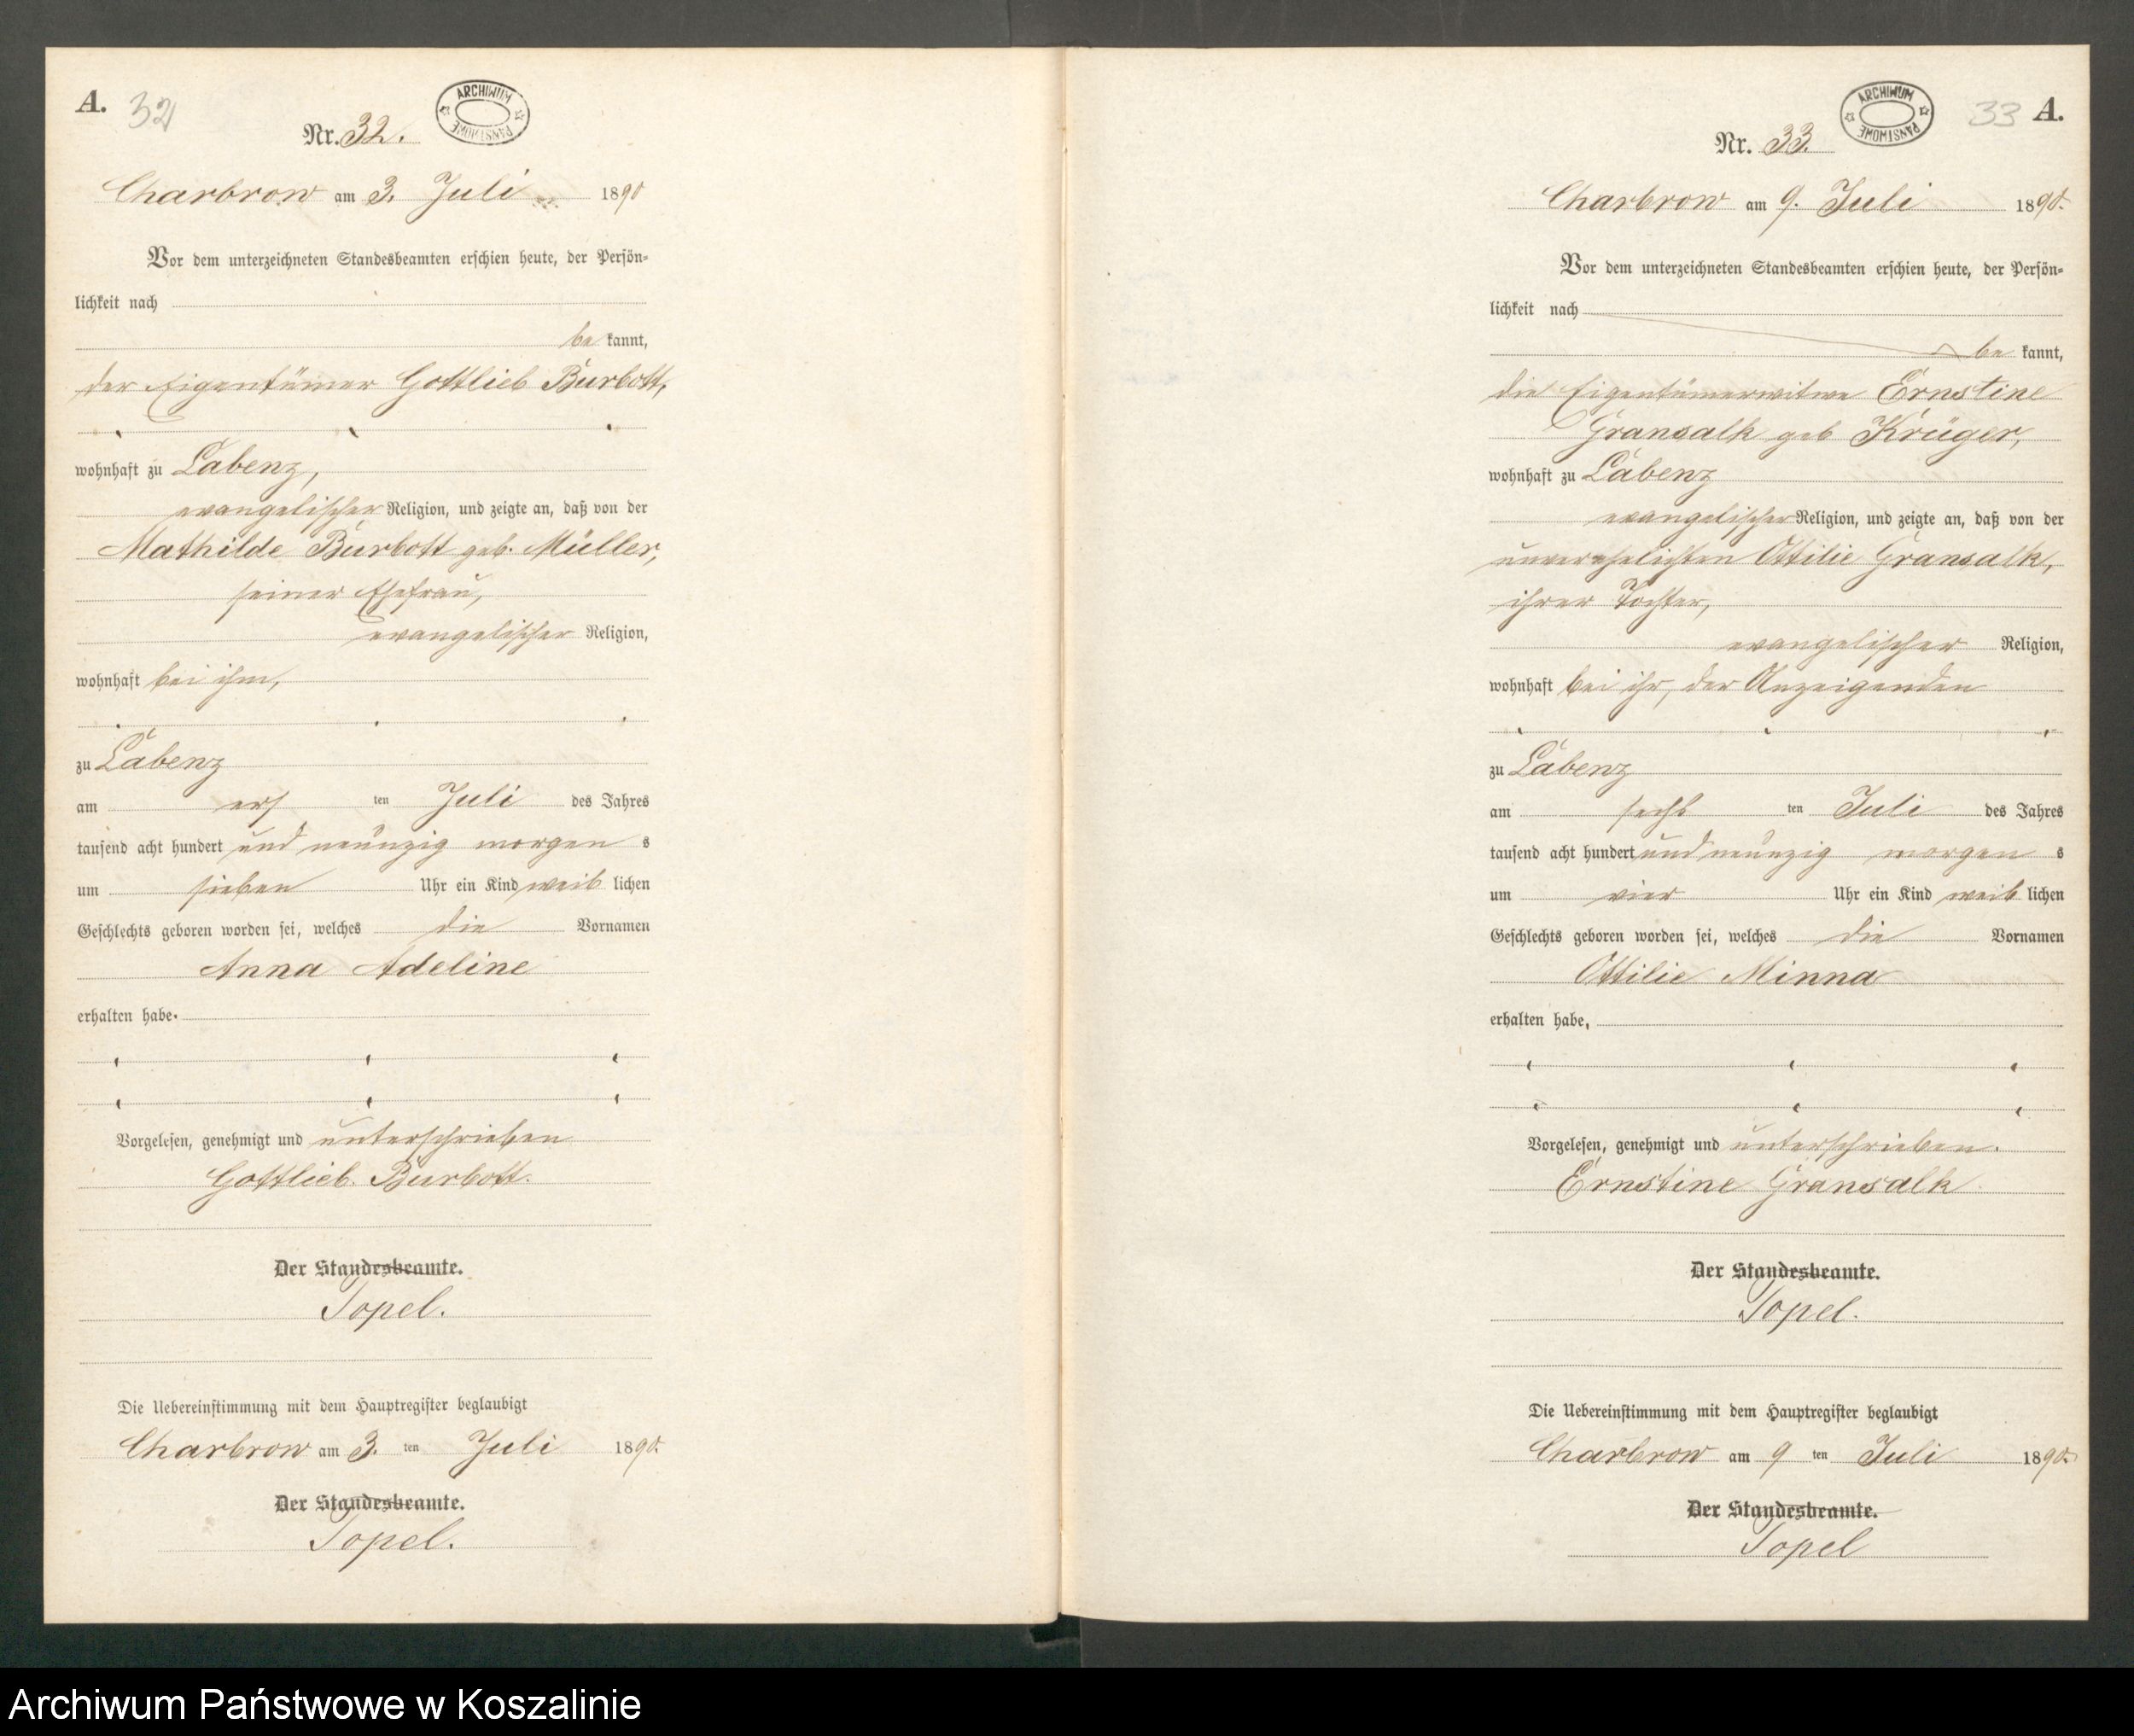 A. 32
ARCHIWUM PAŃSTWOWE
Nr. 32.
Charbrow am 3. Juli 1890
Vor dem unterzeichneten Standesbeamten erschien heute, der Persön-
lichkeit nach
be kannt,
der Eigentümer Gottlieb Burbott,
wohnhaft zu Labenz,
evangelischer Religion, und zeigte an, daß von der
Mathilde Burbott geb. Müller,
seiner Ehefrau,
evangelischer Religion,
wohnhaft bei ihm,
zu Labenz
am ers ten Juli des Jahres
tausend acht hundert und neunzig morgen s
um sieben Uhr ein Kind weib lichen
Geschlechts geboren worden sei, welches die Vornamen
Anna Adeline
erhalten habe.
Vorgelesen, genehmigt und unterschrieben
Gottlieb Burbott.
Der Standesbeamte.
Topel.
Die Uebereinstimmung mit dem Hauptregister beglaubigt
Charbrow am 3. ten Juli 1890.
Der Standesbeamte.
Topel.
ARCHIWUM PAŃSTWOWE
33 A.
Nr. 33.
Charbrow am 9. Juli 1890.
Vor dem unterzeichneten Standesbeamten erschien heute, der Persön-
lichkeit nach
be kannt,
die Eigentümerwitwe Ernstine
Gransalk geb Krüger,
wohnhaft zu Labenz
evangelischer Religion, und zeigte an, daß von der
unverehelichten Ottilie Gransalk,
ihrer Tochter,
evangelischer Religion,
wohnhaft bei ihr, der Anzeigenden
zu Labenz
am sechs ten Juli des Jahres
tausend acht hundert und neunzig morgen s
um vier Uhr ein Kind weib lichen
Geschlechts geboren worden sei, welches die Vornamen
Ottilie Minna
erhalten habe,
Vorgelesen, genehmigt und unterschrieben.
Ernstine Gransalk
Der Standesbeamte.
Topel.
Die Uebereinstimmung mit dem Hauptregister beglaubigt
Charbrow am 9 ten Juli 1890.
Der Standesbeamte.
Topel
Archiwum Państwowe w Koszalinie